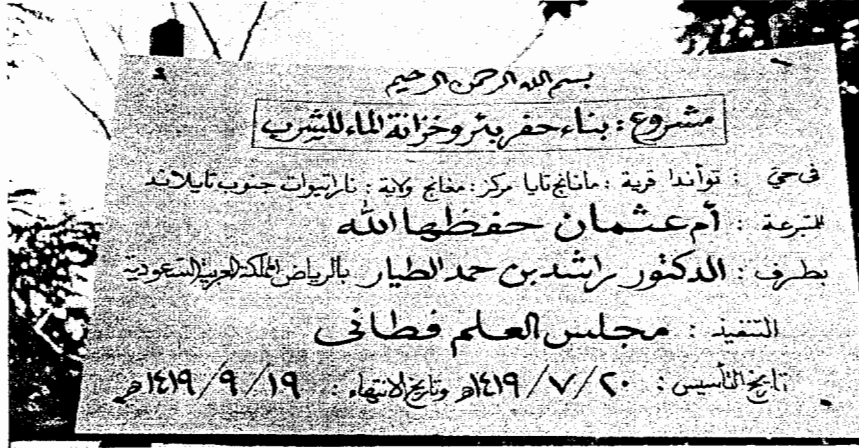 بسم الله الرحمن الرحيم
مشروع : بناء حفر بئر وخزانة الماء للشرب
في حيّ : توأندا قرية : مانانج تايا مركز : مغانج ولاية : ناراتيوات جنوب تايلاند
للمتبرعة : أم عثمان حفظها الله
بطرف : الدكتور راشد بن حمد الطيار بالرياض المملكة العربية السعودية
التنفيذ : مجلس العلم فطاني
تاريخ التأسيس : ٢٠ / ٧ / ١٤١٩هـ وتاريخ الانتهاء : ١٩ / ٩ / ١٤١٩هـ